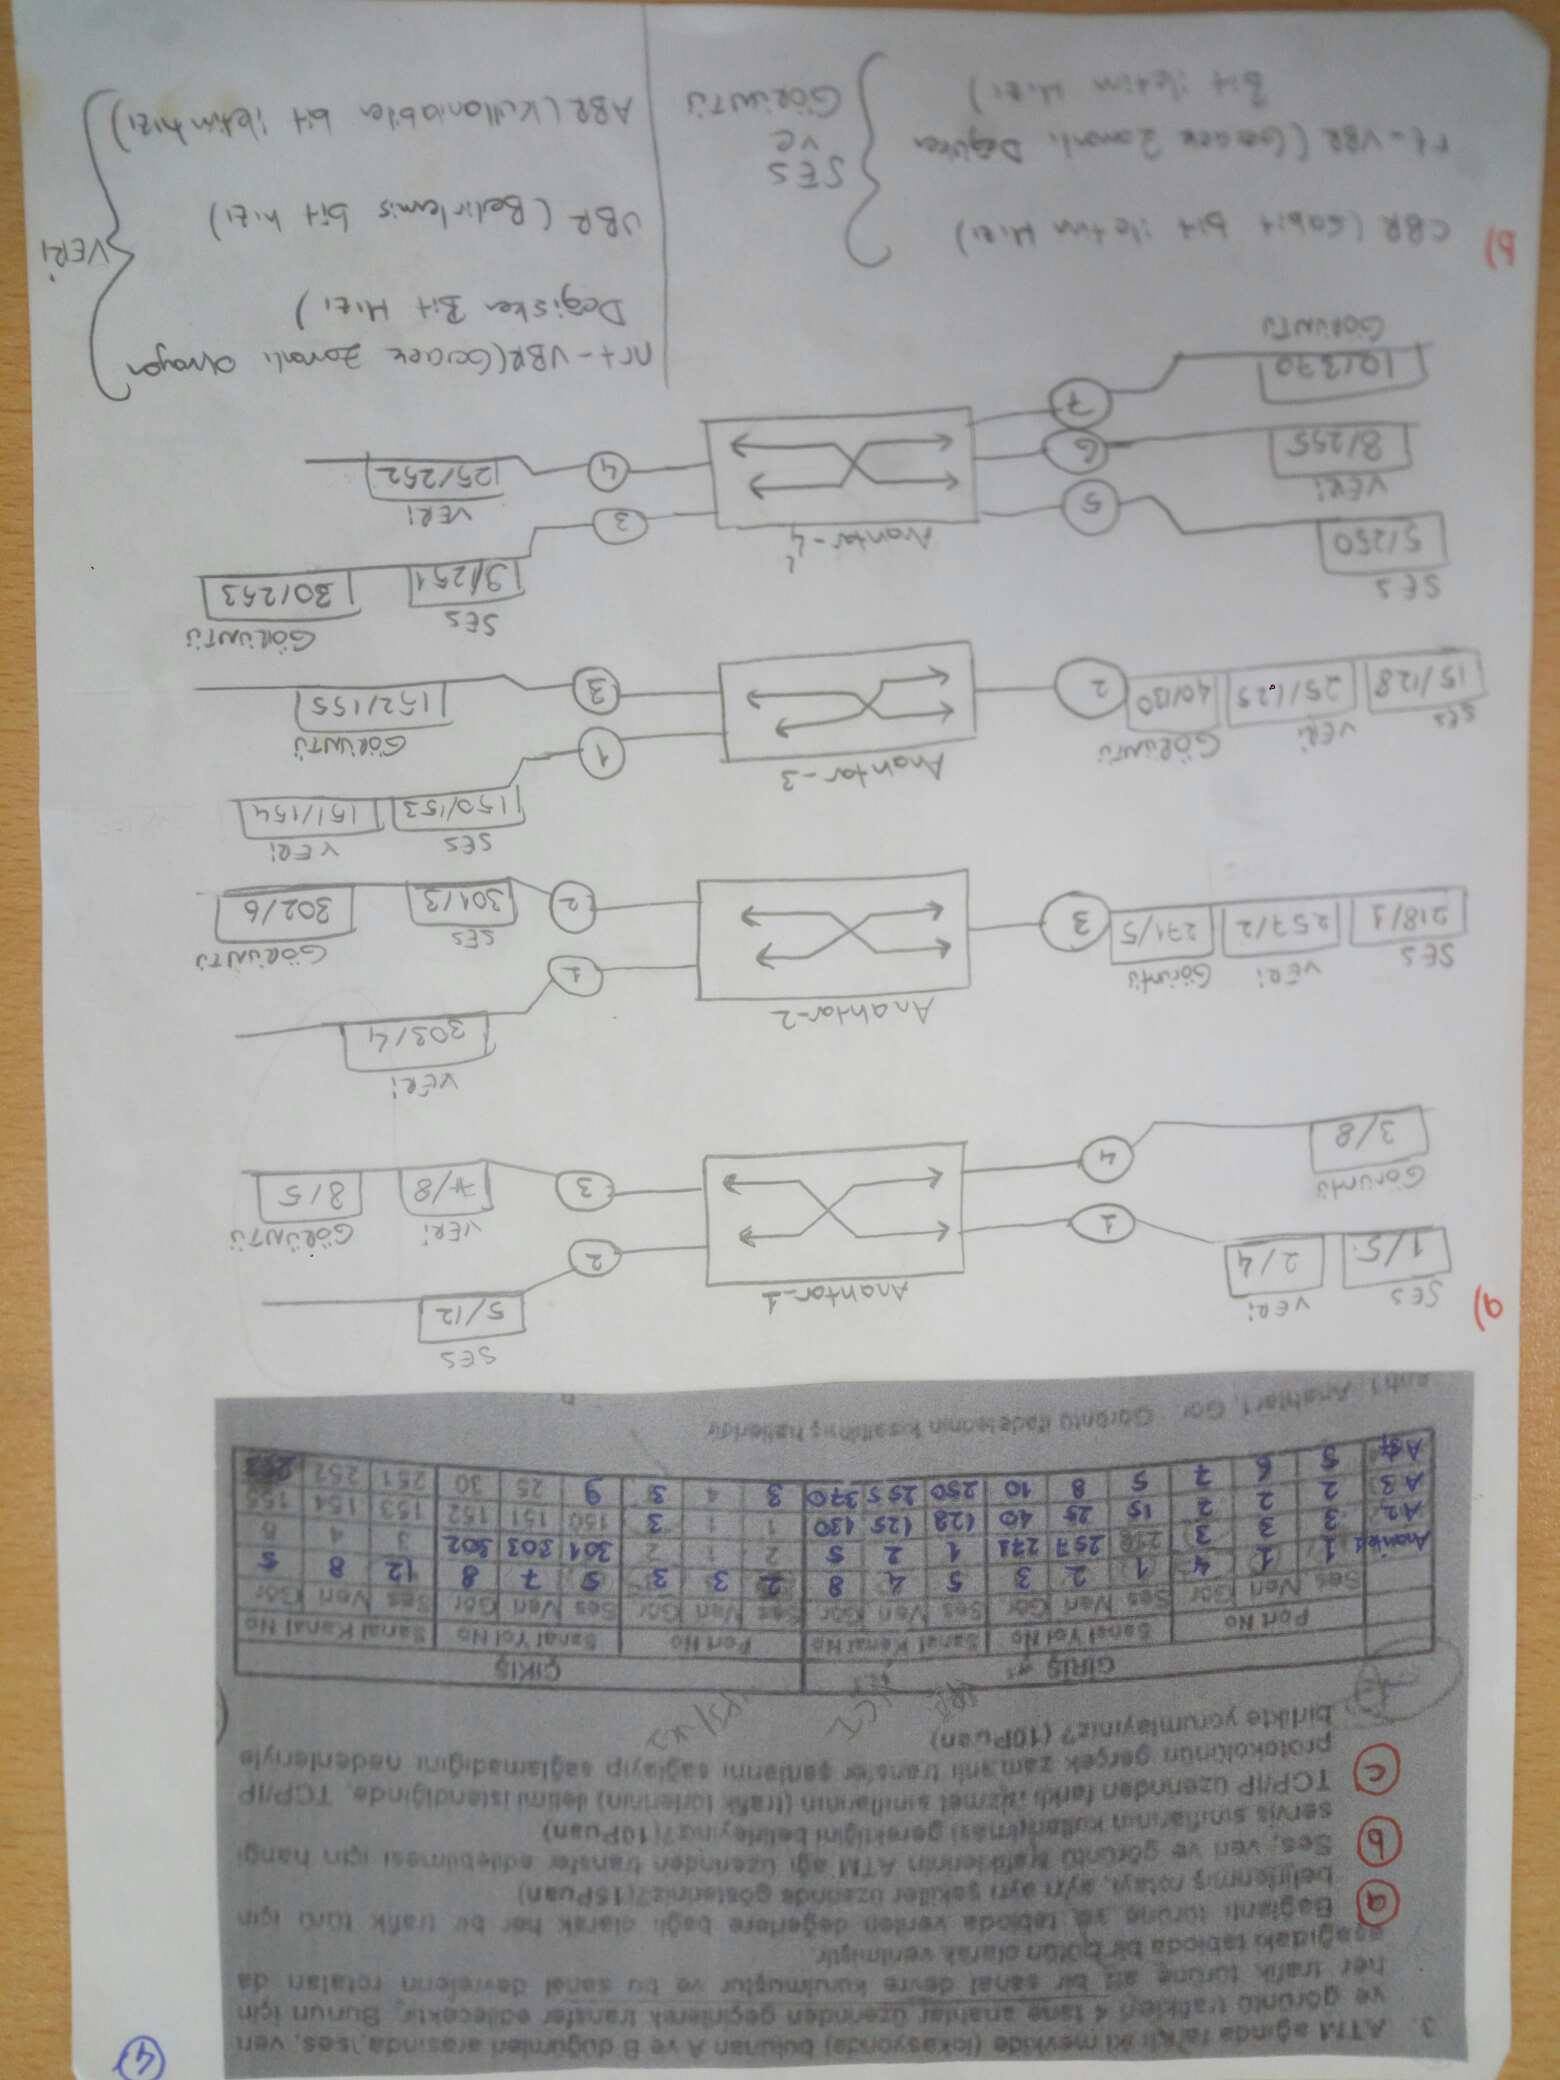 4
3. ATM ağında farklı iki mevkide (lokasyonda) bulunan A ve B düğümleri arasında, ses, veri
ve görüntü trafikleri 4 tane anahtar üzerinden geçirilerek transfer edilecektir. Bunun için
her trafik türüne ait bir sanal devre kurulmuştur ve bu sanal devrelerin rotaları da
aşağıdaki tabloda bir bütün olarak verilmiştir.
a Bağlantı türüne ve tabloda verilen değerlere bağlı olarak her bir trafik türü için
belirlenmiş rotayı, ayrı ayrı şekiller üzerinde gösteriniz?(15Puan)
b Ses, veri ve görüntü trafiklerinin ATM ağı üzerinden transfer edilebilmesi için hangi
servis sınıflarının kullanılması gerektiğini belirleyiniz?(10Puan)
c TCP/IP üzerinden farklı hizmet sınıflarının (trafik türlerinin) iletimi istendiğinde, TCP/IP
protokolünün gerçek zamanlı transfer şartlarını sağlayıp sağlamadığını nedenleriyle
birlikte yorumlayınız? (10Puan)
GİRİŞ ÇIKIŞ
Port No Sanal Yol No Sanal Kanal No Port No Sanal Yol No Sanal Kanal No
Ses Veri Gör Ses Veri Gör Ses Veri Gör Ses Veri Gör Ses Veri Gör Ses Veri Gör
1 1 4 1 2 3 5 4 8 2 3 3 5 7 8 12 8 5
A2 3 3 3 218 257 271 1 2 5 2 1 2 301 303 302 3 4 6
A3 2 2 2 15 25 40 128 125 130 1 1 3 150 151 152 153 154 155
A4 5 6 7 5 8 10 250 255 370 3 4 3 9 25 30 251 252 253
Anh1: Anahtar1, Gör: Görüntü ifadelerinin kısaltılmış halleridir.
a)
SES VERİ
1/5 2/4
1
Görüntü
3/8
4
Anahtar-1
2
SES
5/12
3
VERİ GÖRÜNTÜ
7/8 8/5
SES VERİ Görüntü
218/1 257/2 271/5
3
Anahtar-2
1
VERİ
303/4
2
SES GÖRÜNTÜ
301/3 302/6
SES VERİ GÖRÜNTÜ
15/128 25/125 40/130
2
Anahtar-3
1
SES VERİ
150/153 151/154
3
GÖRÜNTÜ
152/155
SES
5/250
5
VERİ
8/255
6
10/370
7
GÖRÜNTÜ
Anahtar-4
3
SES GÖRÜNTÜ
9/251 30/253
4
VERİ
25/252
b)
CBR (Sabit bit iletim Hızı)
rt-VBR (Gerçek Zamanlı Değişken
Bit iletim Hızı)
SES
ve
GÖRÜNTÜ
nrt-VBR (Gerçek Zamanlı olmayan
Değişken Bit Hızı)
UBR (Belirlenmiş bit hızı)
ABR (Kullanılabilen bit iletim hızı)
VERİ